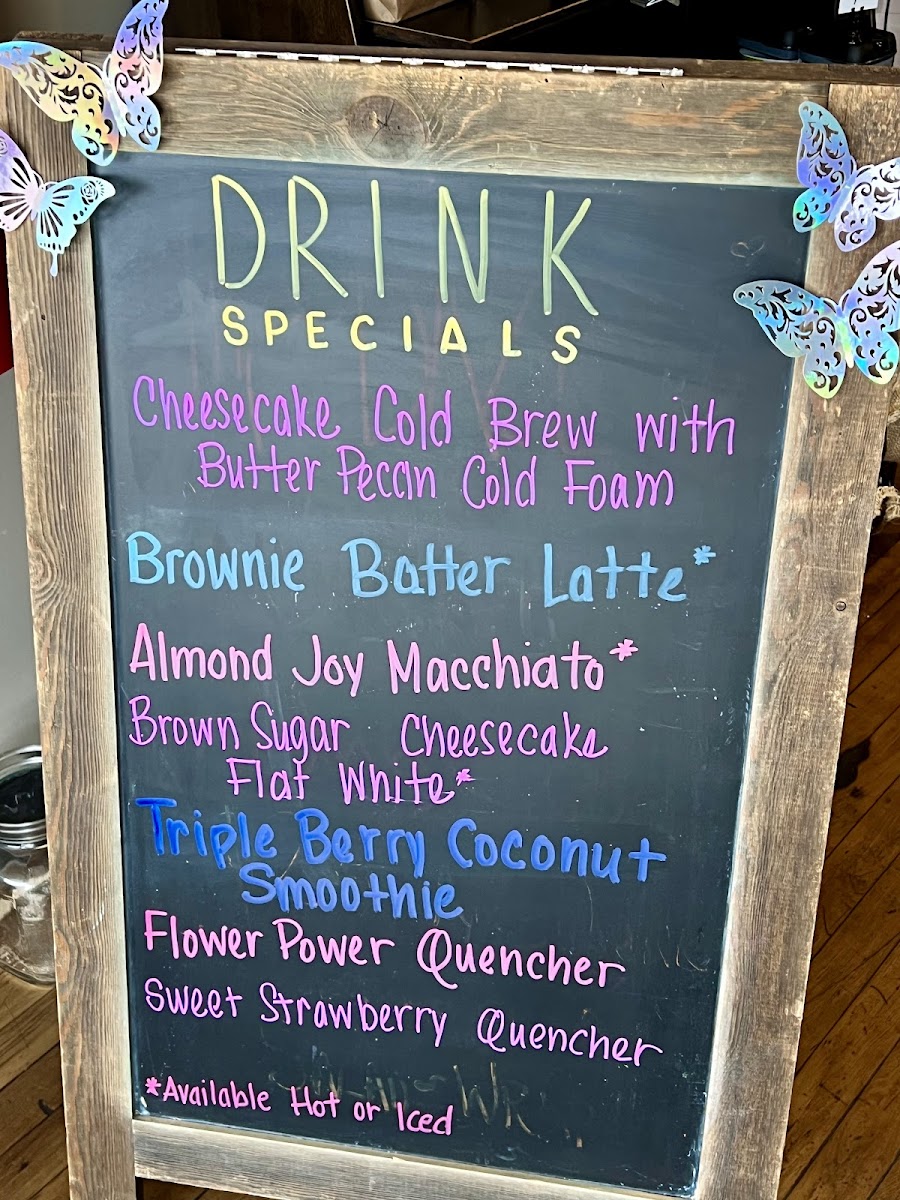 DRINK
SPECIALS
Cheesecake Cold Brew with
Butter Pecan Cold Foam
Brownie Batter Latte*
Almond Joy Macchiato*
Brown Sugar Cheesecake
Flat White*
Triple Berry Coconut
Smoothie
Flower Power Quencher
Sweet Strawberry Quencher
*Available Hot or Iced